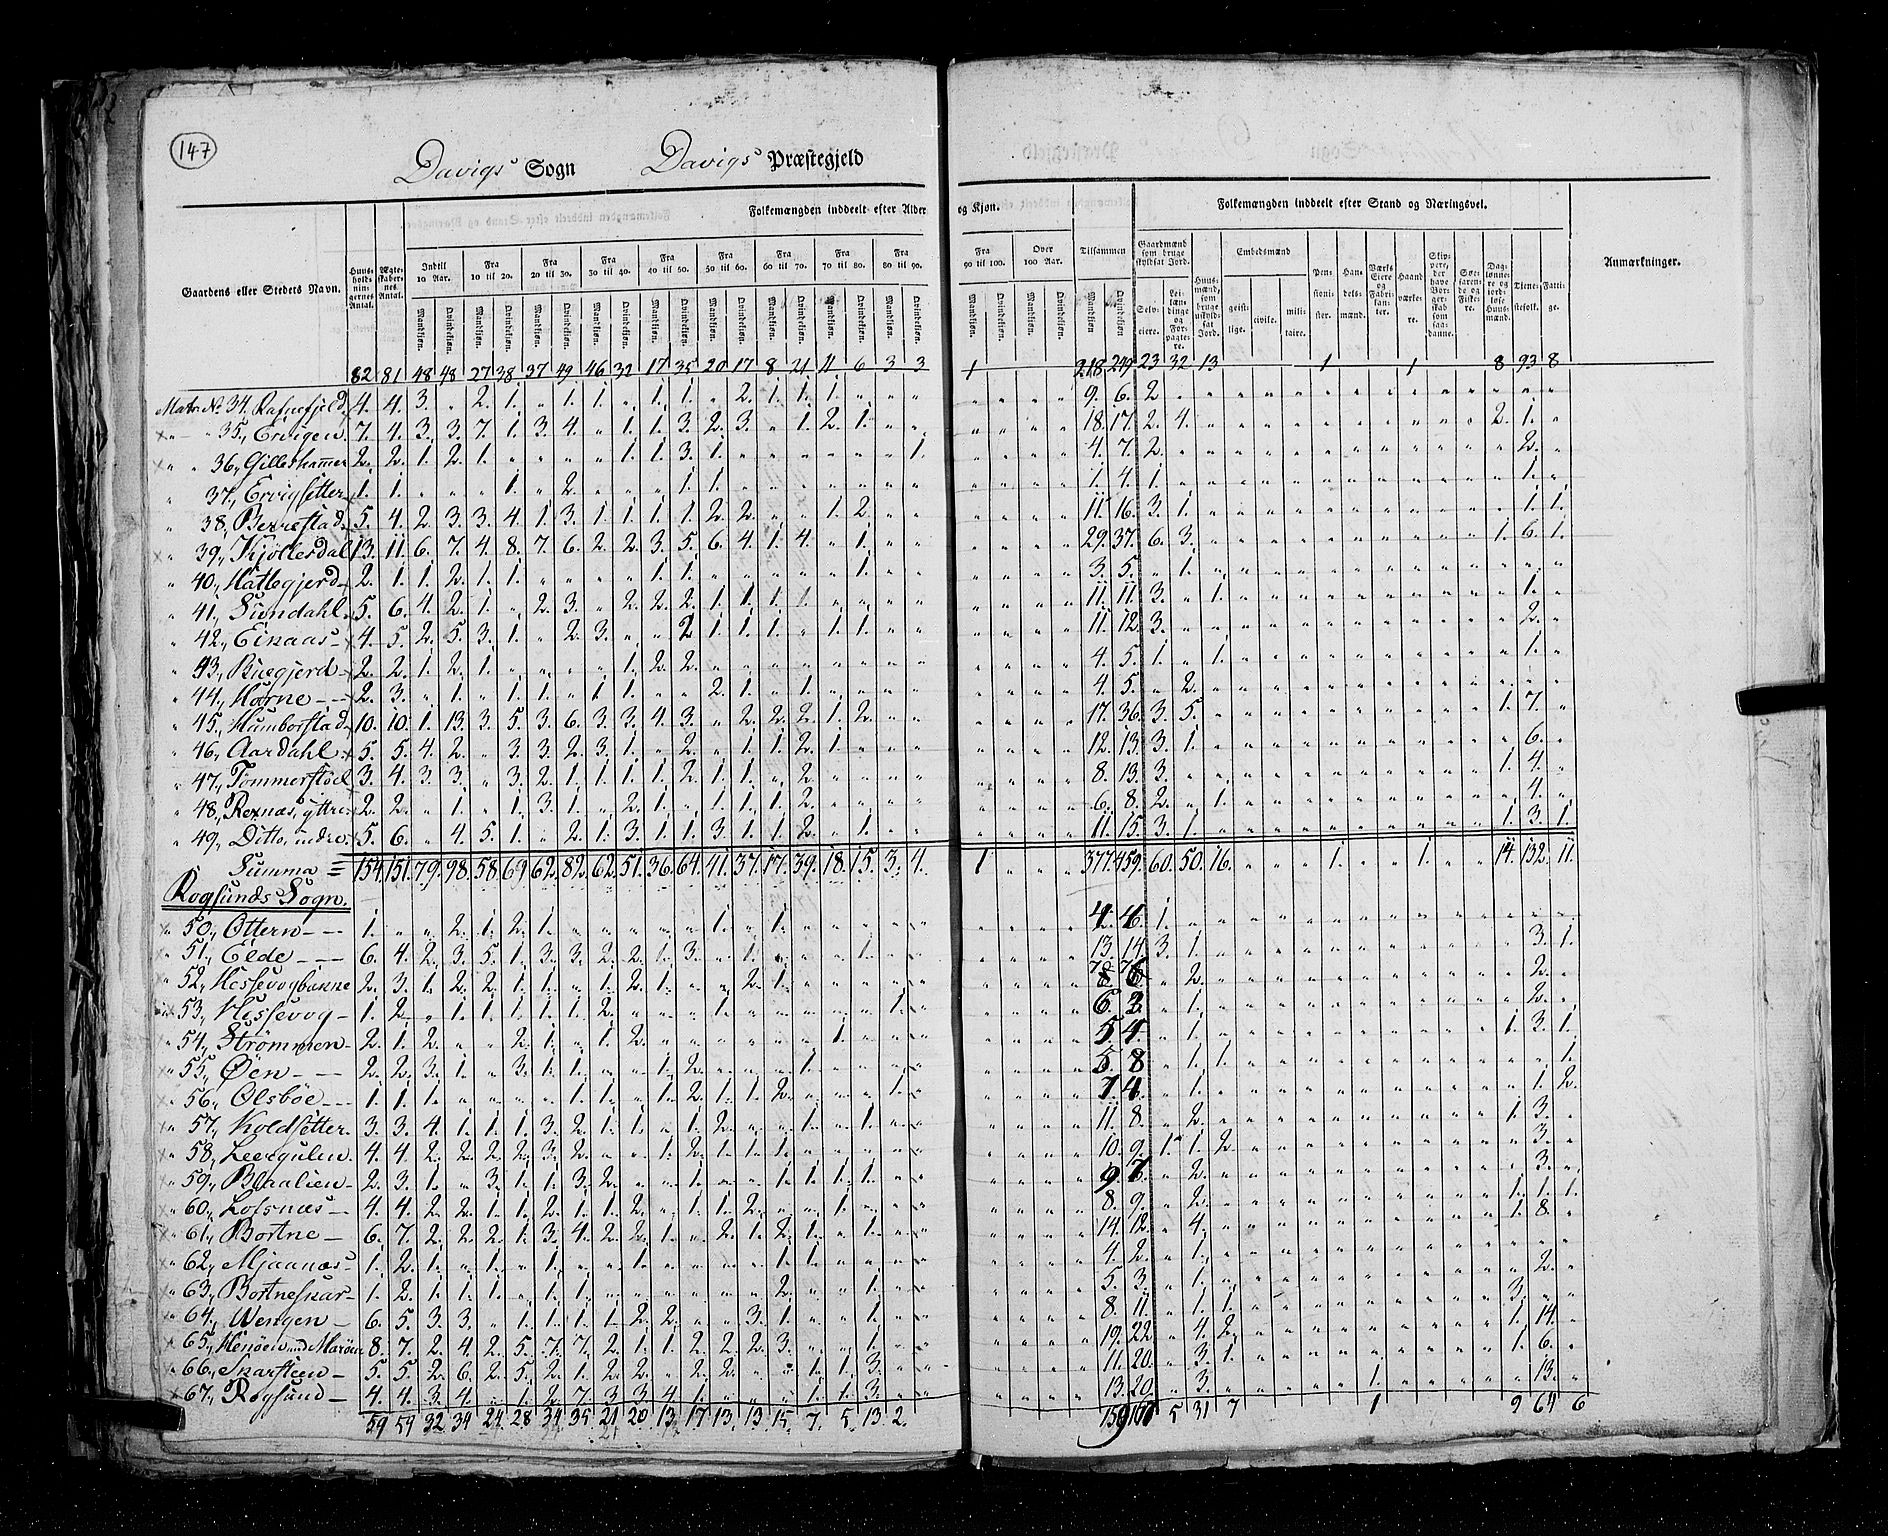 147
Davigs Sogn Davigs Præstegjeld
Folkemængden inddeelt efter Alder og Kjøn. Tilsammen Folkemængden inddeelt efter Stand og Næringsvei. Anmærkninger.
Gaardens eller Stedets Navn. Huusholdningernes Antal. Ægteskabernes Antal. Indtil 10 Aar. Fra 10 til 20. Fra 20 til 30. Fra 30 til 40. Fra 40 til 50. Fra 50 til 60. Fra 60 til 70. Fra 70 til 80. Fra 80 til 90. Fra 90 til 100. Over 100 Aar.
Gaardmænd som bruge skyldsat Jord. Selveiere. Leilændinge og Forpagtere. Huusmænd, som bruge uskyldsat Jord. Embedsmænd geistlige. civile. militaire. Pensionister. Handelsmænd. Værks Eiere og Fabrikanter. Haandværkere. Skippere, der have Borgerskab som saadanne. Søefarende og Fiskere. Daglønnere og jordløse Huusmænd. Tjenestefolk. Fattige.
Mandkjøn. Qvindekjøn.
82 81 48 48 27 38 37 49 46 32 17 35 20 17 8 21 11 6 3 3 1 218 249 23 32 13 1 1 8 93 8
Matr. No. 34, Rafnefjeld 4. 4. 3. „ 2. 1. „ 1. 1. „ 1. 1. „ 2. 1. 1. 1. „ „ „ 9. 6. 2
„ 35, Ervigen 7. 4. 3. 3. 7. 1. 3. 4. „ 1. 1. 3. 2. 3. „ 1. 2. 1. „ „ 18. 17. 2. 4. 2. 1. „
„ 36, Gilleshammer 2. 2. 1. 2. 1. „ „ „ „ 1. 1. 3. 1. „ „ „ „ „ „ 1. 4. 7. 2. 2. „
„ 37, Ervigsetter 1. 1. „ „ „ 1. „ 2. „ „ „ 1. 1. „ „ „ „ „ „ „ 1. 4. 1. 1. „
„ 38, Berrestad 5. 4. 2. 3. 3. 4. 1. 3. 1. 1. 1. 1. 2. 2. „ „ 1. 2. „ „ 11. 16. 3. 1. 1. 1.
„ 39, Kjöllesdal 13. 11. 6. 7. 4. 8. 7. 6. 2. 2. 3. 5. 6. 4. 1. 4. „ 1. „ „ 29. 37. 6. 3. 1. 6. 1.
„ 40, Hattegjerd 2. 1. 1. 2. 1. 1. „ „ „ „ 1. 1. „ „ „ „ „ 1. „ „ 3. 5. „ 1.
„ 41, Sundahl 5. 6. 4. 2. 1. „ 2. 3. „ 2. 2. 2. 1. 1. 1. 1. „ „ „ „ 11. 11. 3. „ 1. 1. „
„ 42, Eikaas 4. 5. 2. 5. 3. 1. „ 2. 3. „ „ 2 1. 1. 1. „ 1. 1. „ „ 11. 12. 3. 2. „
„ 43, Buegjerd 2. 2. 1. 2. 1. „ „ „ „ 1. 2. 2. „ „ „ „ „ „ „ „ 4. 5. 1. „ 1. 1. „
„ 44, Horne 2. 3. „ 1. „ 1. 1. „ 1 1. „ „ 2. 1. „ 1. „ „ „ „ 4. 5. „ 2.
„ 45, Humborstad 10. 10. 1. 13. 3. 5. 3. 6. 3. 3. 4. 3. „ 2. 2. 2. 1. 2. „ „ 17. 36. 3. 5. 1. 7. „
„ 46, Aardahl 5. 5. 4. 2. „ 3 3. 2. 3. 1. „ 2. „ 1. 1. 2. 1. „ „ „ 12. 13. 3. 1. 6. „
„ 47, Tommerstöel 3. 4. 3. 3. „ 3. 2. 1. 1. 1. 1. 2. 1. 1. „ 2. „ „ „ „ 8. 13. 3. 1. 4. „
„ 48, Rexnæs, yttre 2. 2. „ 1. „ 1. 3. 1. „ 2. 1. „ 1. 1. 1. 2. „ „ „ „ 6. 8. 2. „ 1. 4. „
„ 49, Ditto, indre 5. 6. „ 4. 5. 1. „ 2. 1. 3. 1. 1. 3. 1. 1. 2. „ 1. „ „ 11. 15. 3. 1. 1. 3. 1.
Summa = 154. 151. 79. 98. 58. 69 62. 82. 62. 51. 36. 64. 41. 37. 17. 39. 18. 15. 3. 4. 1 377. 459. 60. 50. 16. 1. 1. 14. 132. 11.
Rogsunds Sogn.
„ 50, Ottern 1. „ „ 2. 1. 2. 1. „ „ „ „ „ 1. „ 1. 4. 4. 1.
„ 51, Elde 6. 4. 2. 3. 5. 1. 3. 3. 2. 2. 1. 3. „ 1. „ „ „ 1. 13. 14. 3. 1. 3. 1.
„ 52, Hessevogbakke 2. 3. 1. 2. 2. 1. 1. „ 1. 2. 1. „ „ 2. 1. 2. 2. „
„ 53, Hessevog 1. 2. „ 1. 1. 1. 1. 1. 2. „ „ „ 1. 1. 6. 1. 2. „
„ 54, Strömmen 2. 1. 2. „ „ 2. 1. „ 1. 2. 1. 5. 4. „ 1. 1. 3. 1.
„ 55, Öen 2. 2. 3. 1. „ 3. 1. 1. „ „ 1. 2. „ „ 1. 5. 8 „ 1. 1. 1.
„ 56, Olsböe 1. 1. 1. „ „ „ „ 1. 1. 1. 1. 2. 1. 1. 2. „ „ „ 1. 7. 4. „ 1. 1. 2.
„ 57, Koldsetter 3. 3. 4. 1. 1. 1. 3. 2. 1. 1. „ 1. 2. „ „ 1. 1. „ 1. 11. 8. „ 2. 1. 3. „
„ 58, Leergulen 4. 4. 2. 2. 2. 2. 3. 2. „ „ 1. 2. 1. 1. 1. 10. 9. 1. 1. 2. 3. „
„ 59, Blaalien 2. 3. 1. „ 3. 1. 1. 3. 2. „ „ 1. „ „ 1. 1. 1. 9. 7. „ 2. 3. „
„ 60, Lofsnæs 4. 4. 2. 2. 1. 1. 2. 1. 1. 2. „ 1. 1. 2. „ „ 1. 8. 9. „ 2. 1. 1. 1.
„ 61, Bortne 6. 7. 2. 2. 2. 1. 3. 4. 2. 2. 1. „ 2. 1. 2. 1. „ 1. 14. 12. „ 4. 1. 8. „
„ 62, Mjaanæs 1. 2. 1. „ 1. „ 1. „ „ 1. „ „ „ „ 1. 1. 4. 2. „ 1.
„ 63, Bortneskar 1. 2. 1. 1. 1. „ 1. 1. „ „ „ „ „ „ 2. „ „ 1. 5. 3. „ 1. 2. „
„ 64, Wengen 6. 5. 3. 3. „ 1. 1. 1. 1. 2. 2. „ „ 3. 1. „ „ 1. 8. 11. „ 1. 1. 3. „
„ 65, Henöen und Maröen 8. 7. 2. 4. 2. 5. 7. 7. 2. 1. 1. 2. 2. 2. 3. „ „ 1. 19. 22 „ 4. 2. 1. 14. „
„ 66, Skarsteen 5. 5. 2. 6. 2. 5. 2. 1. 2. „ 2. 2. „ „ „ 1. 1. 3. 11. 20. „ 3. 1. 1. 6. „
„ 67, Rogsund 4. 4. 3. 4. „ 1. 2. 7. 3. 3. 4. 1. „ „ „ 1. 1. 3. 13. 20. „ 3. 1. 13. „
59 59 32 34 24 28 34 35 21 20 13 17 13. 13 15. 7. 5. 13. 2. 5 31 7 1 9 64 6